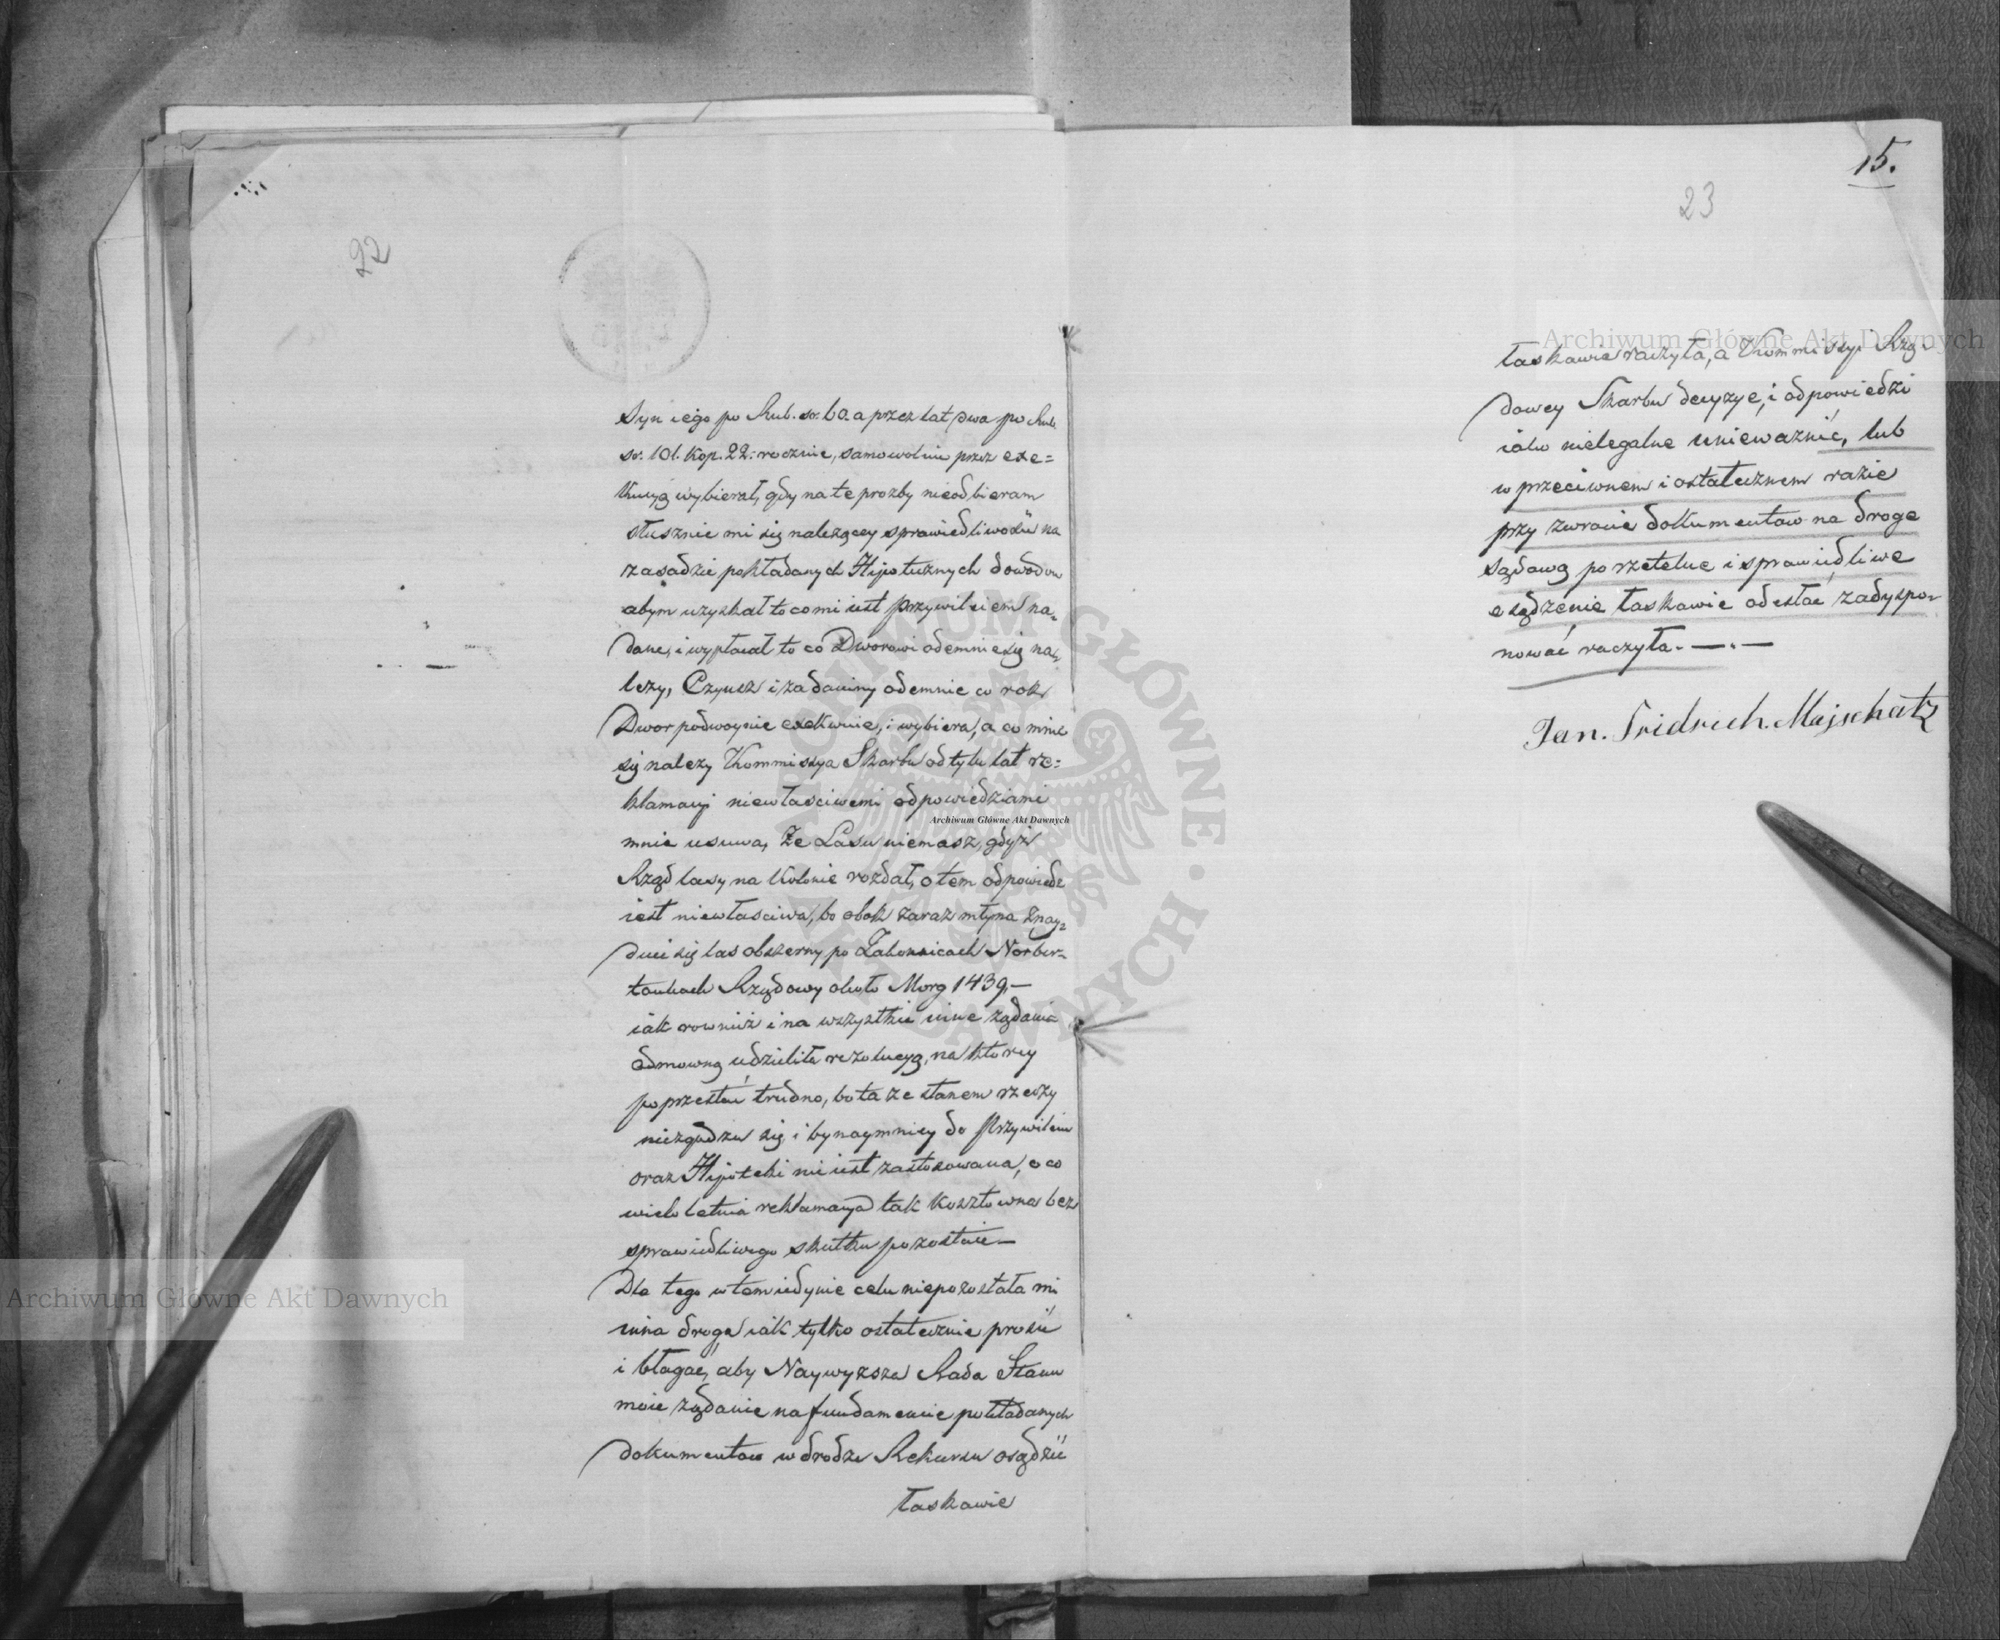 22
Syn iego po Rub. sr. 60. a przez lat dwa po Rub
sr. 101. Kop. 22: rocznie, samowolnie przez exe=
kucyą wybierał, gdy na te prozby nieodbieram
słusznie mi się należącey sprawiedliwości na
zasadzie pokładanych Hipotecznych dowodow
abym uzyskał to co mi iest przywileiem na=
dane, i wypłacał to co Dworowi odemnie się na=
leży, Czynsz i zadaniny odemnie co rok
Dwor podwoynie exekwuie, i wybiera, a co mnie
się należy Kommissya Skarbu od tylu lat re=
klamacyi niewłasciwemi odpowiedziami
mnie usuwa, Że Lasu niemasz, gdyż
Rząd lasy na Kolonie rozdał, o tem odpowiedz
iest niewłasciwa, bo obok zaraz młyna znay=
duie się las obszerny po Zakonnicach Norber=
tankach Rządowy około Morg 1439,—
iak rowniż i na wszystkie inne żądania
odmowną udzieliła rezolucyą, na ktorey
poprzestać trudno, bo ta ze stanem rzeczy
niezgadza się, i bynaymniey do Przywileiu
oraz Hipoteki nie iest zastosowana, o co
wieloletnia reklamacya tak kosztowna bez
sprawiedliwego skutku pozostaie—
Dla tego w tem iedynie celu niepozostała mi
inna droga iak tylko ostatecznie prosić
i błagać, aby Naywyższa Rada Stanu
moie żądanie na fundamencie pokładanych
dokumentow w drodze Rekursu osądzić
łaskawie
15.
23
łaskawie raczyła, a Kommissyi Rzą=
dowey Skarbu decyzye, i odpowiedzi
iako nielegalne unieważnić, lub
w przeciwnem i ostatecznem razie
przy zwrocie dokumentow na droge
sądową po rzetelne i sprawiedliwe
osądzenie łaskawie odesłać zadyspo=
nować raczyła. —.—
Jan. Fridrich. Majschatz
Archiwum Główne Akt Dawnych
Archiwum Główne Akt Dawnych
Archiwum Główne Akt Dawnych
ARCHIWUM GŁÓWNE AKT DAWNYCH